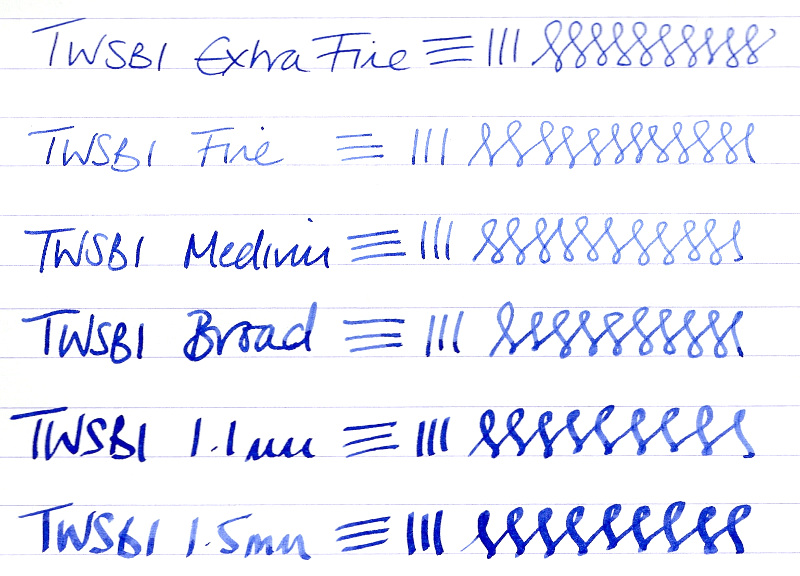 TWSBI Extra Fine
TWSBI Fine
TWSBI Medium
TWSBI Broad
TWSBI 1.1mm
TWSBI 1.5mm